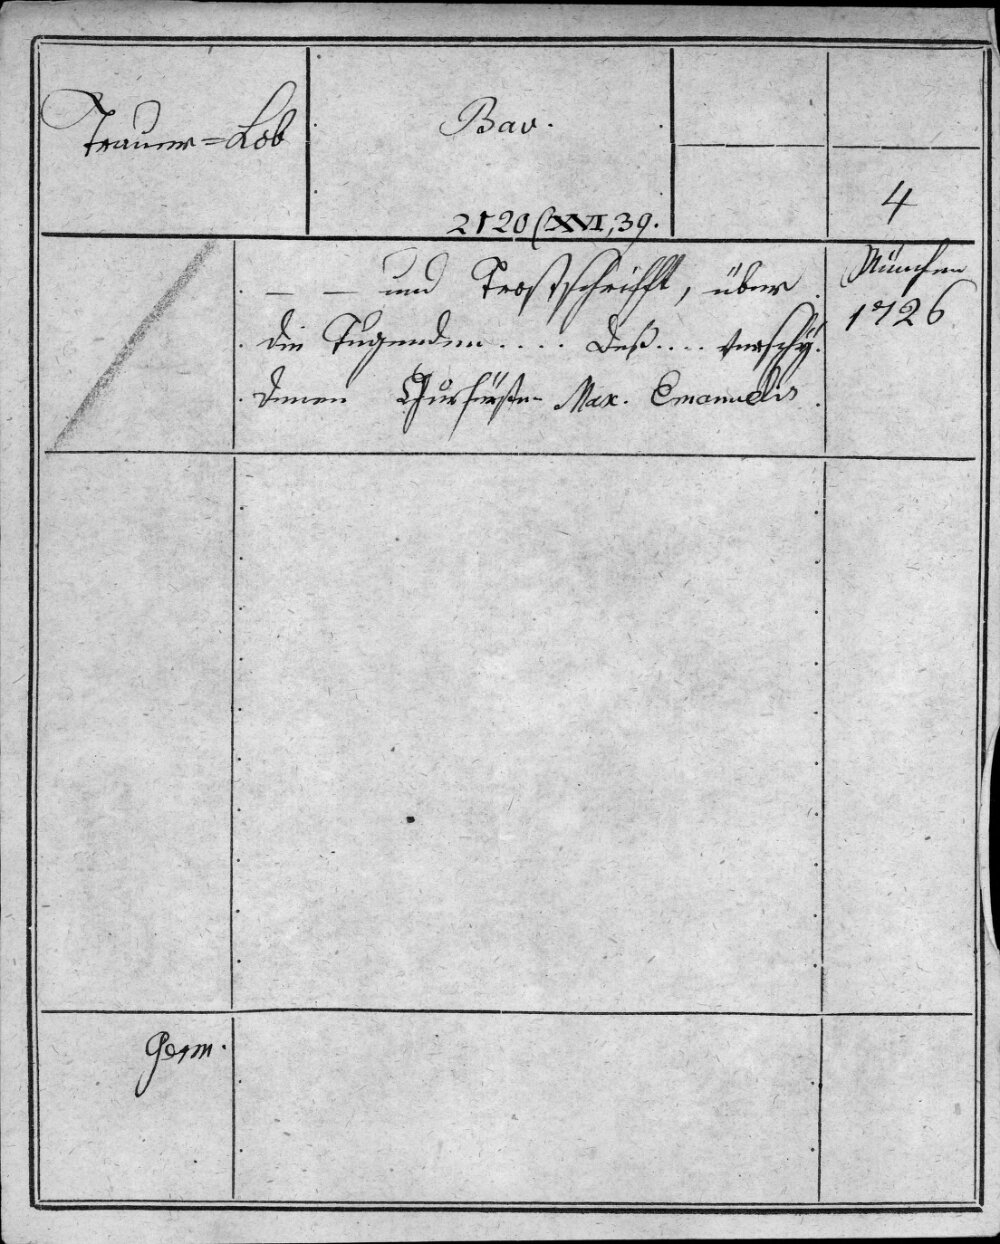 Trauer=Lob
Bav.
2120 (XVI, 39.
4
— — und Trostschrifft, über
die Tugenden .... deß ....
Churfürsten Max. Emanuelis
München
1726
Germ.